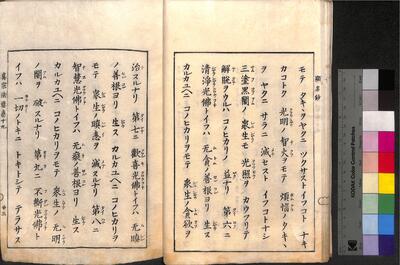 顯名鈔
モテ タキヽヲヤクニ ツクサストイフコト ナキ
カコトク 光明ノ智火ヲモテ 煩惱ノタキヽ
ヲ ヤクニ サラニ 滅セスト イフコトナシ
三塗黒闇ノ 衆生モ 光照ヲ カウフリテ
解脱ヲウルハ コノヒカリノ 益ナリ 第六ニ
清淨光佛トイフハ 无貪ノ善根ヨリ 生ス
カルカユヘニ コノヒカリヲモテ 衆生ノ貪欲ヲ
治スルナリ 第七ニ 歡喜光佛トイフハ 无瞋
ノ善根ヨリ 生ス カルカユヘニ コノヒカリヲ
モテ 衆生ノ瞋恚ヲ 滅スルナリ 第八ニ
智慧光佛トイフハ 无癡ノ善根ヨリ 生ス
カルカユヘニ コノヒカリヲモテ 衆生ノ 无明
ノ闇ヲ 破スルナリ 第九ニ 不斷光佛ト
イフハ 一切ノトキニ トキトシテ テラサス
KODAK Color Control Patches